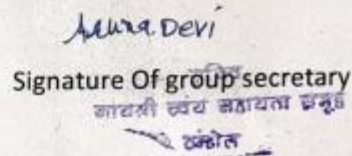 Devi
सचिव
Signature Of group secretary
गायत्री स्वयं सहायता समूह